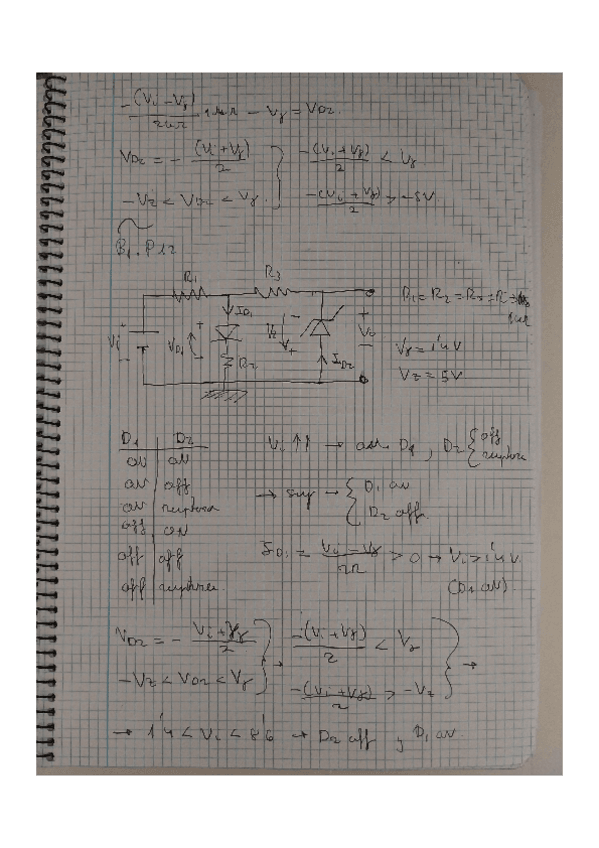 -(Vi - Vγ)/2 · - Vγ = VD2
VD2 = - (Vi + Vγ)/2 } -(Vi + Vγ)/2 < Vγ
-Vz < VD2 < Vγ -(Vi + Vγ)/2 > -5V
B1. P12
R1 R3
R1 = R2 = R3 = R =
Vi + VD1 + ID1 R2 - + ID2 + Vo -
Vγ = 1'4 V
Vz = 5V
D1 D2
on on
on off
on ruptura
off on
off off
off ruptura
Vi ↑↑ → on D1, D2 { off
ruptura
→ sup → { D1 on
D2 off
ID1 = (Vi - Vγ)/2R > 0 → Vi > 1'4 V
(D1 on)
VD2 = - (Vi + Vγ)/2 } → -(Vi + Vγ)/2 < Vγ } →
-Vz < VD2 < Vγ -(Vi + Vγ)/2 > -Vz
→ 1'4 < Vi < 8'6 → D2 off y D1 on